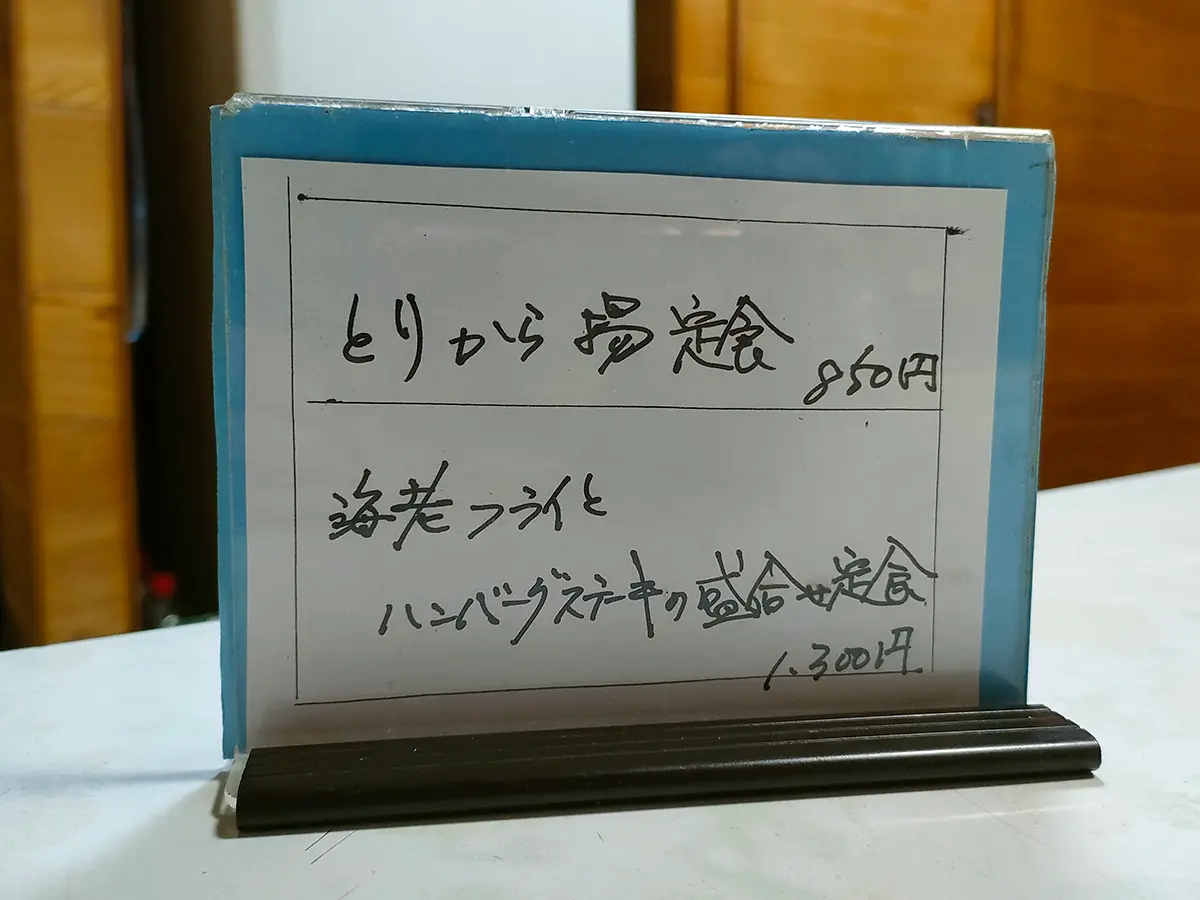 とりから揚定食
850円
海老フライと
ハンバーグステーキの盛合せ定食
1.300円